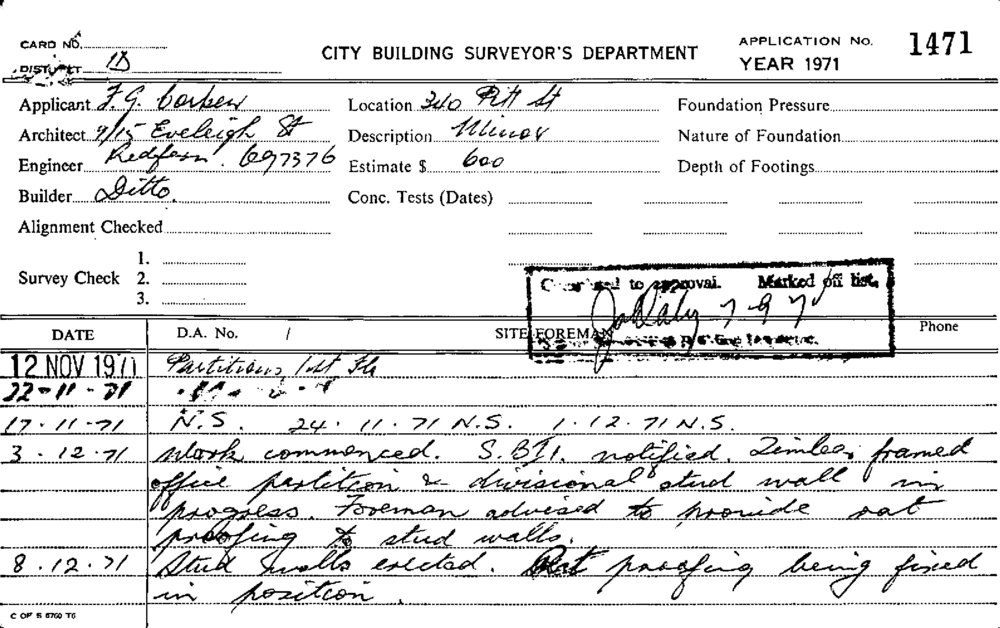 CARD NO.
DISTRICT 1B
CITY BUILDING SURVEYOR'S DEPARTMENT
APPLICATION No. 1471
YEAR 1971
Applicant F. G.
Location 340 Pitt St
Foundation Pressure
Architect 9/15 Eveleigh St
Description Minor
Nature of Foundation
Engineer Redfern. 697376
Estimate $ 600
Depth of Footings
Builder Ditto.
Conc. Tests (Dates)
Alignment Checked
Survey Check 1.
2.
3.
to approval. Marked off list.
DATE
D.A. No. /
SITE FOREMAN
Phone
12 NOV 1971 Partitions 1st Flr
22-11-71
17.11-71 N.S. 24.11.71 N.S. 1.12.71 N.S.
3.12.71 Work commenced. S.B.I. notified. Timber framed
office partition & divisional stud wall in
progress. Foreman advised to provide rat
proofing to stud walls.
8.12.71 Stud walls erected. Rat proofing being fixed
in position.
C OF S 6760 T6